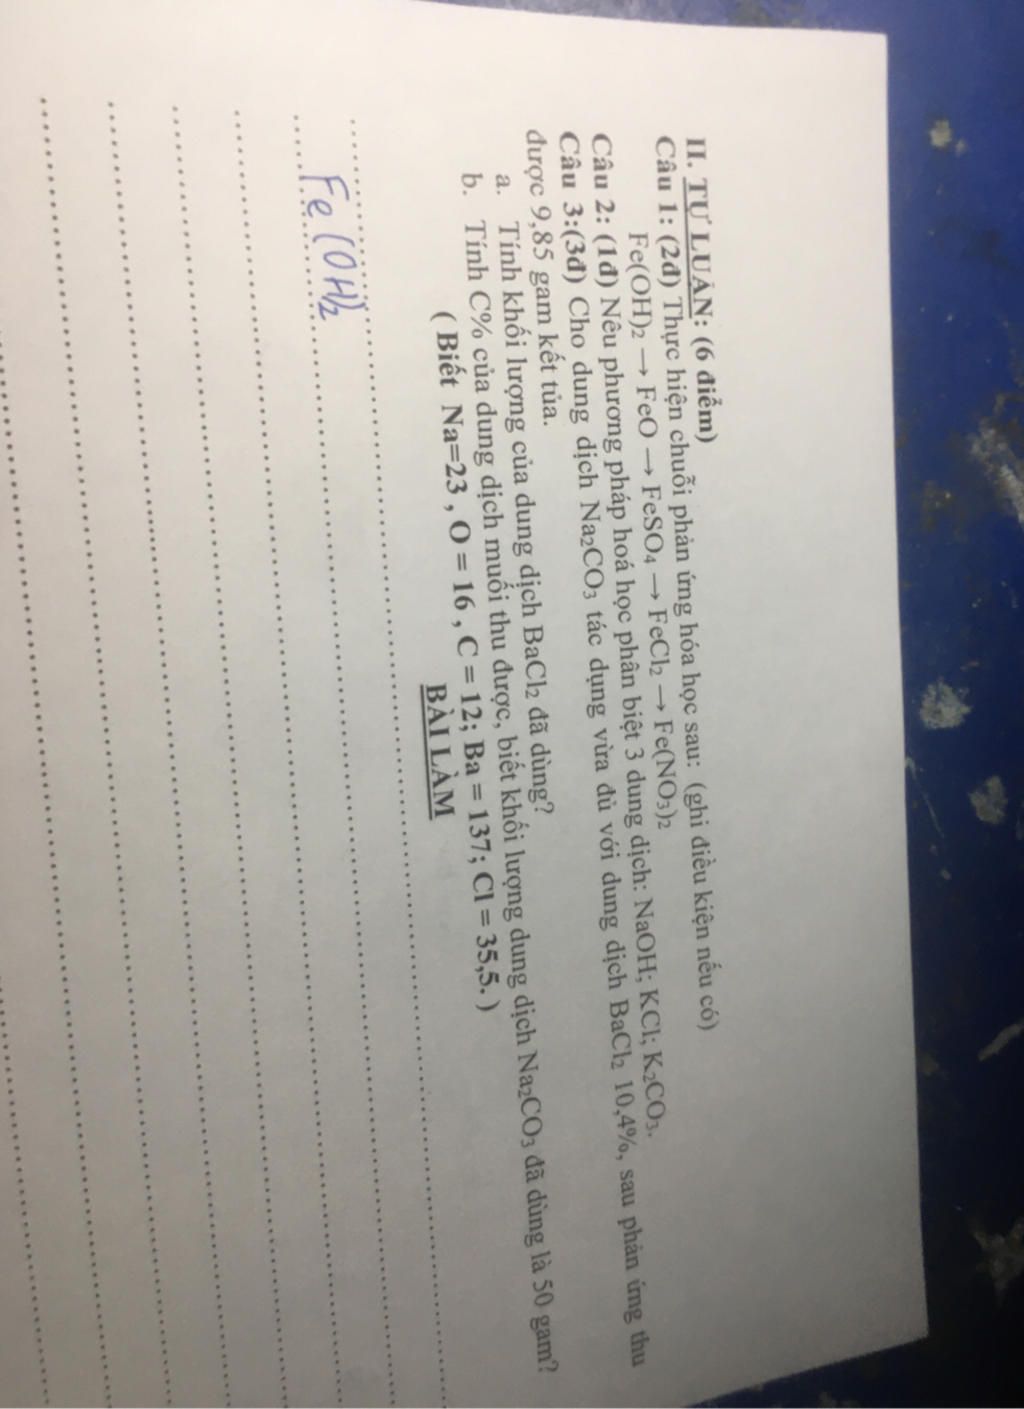 II. TỰ LUẬN: (6 điểm)
Câu 1: (2đ) Thực hiện chuỗi phản ứng hóa học sau: (ghi điều kiện nếu có)
Fe(OH)2 → FeO → FeSO4 → FeCl2 → Fe(NO3)2
Câu 2: (1đ) Nêu phương pháp hoá học phân biệt 3 dung dịch: NaOH; KCl; K2CO3.
Câu 3:(3đ) Cho dung dịch Na2CO3 tác dụng vừa đủ với dung dịch BaCl2 10,4%, sau phản ứng thu
được 9,85 gam kết tủa.
a. Tính khối lượng của dung dịch BaCl2 đã dùng?
b. Tính C% của dung dịch muối thu được, biết khối lượng dung dịch Na2CO3 đã dùng là 50 gam?
( Biết Na=23 , O = 16 , C = 12; Ba = 137; Cl = 35,5. )
BÀI LÀM
Fe(OH)2